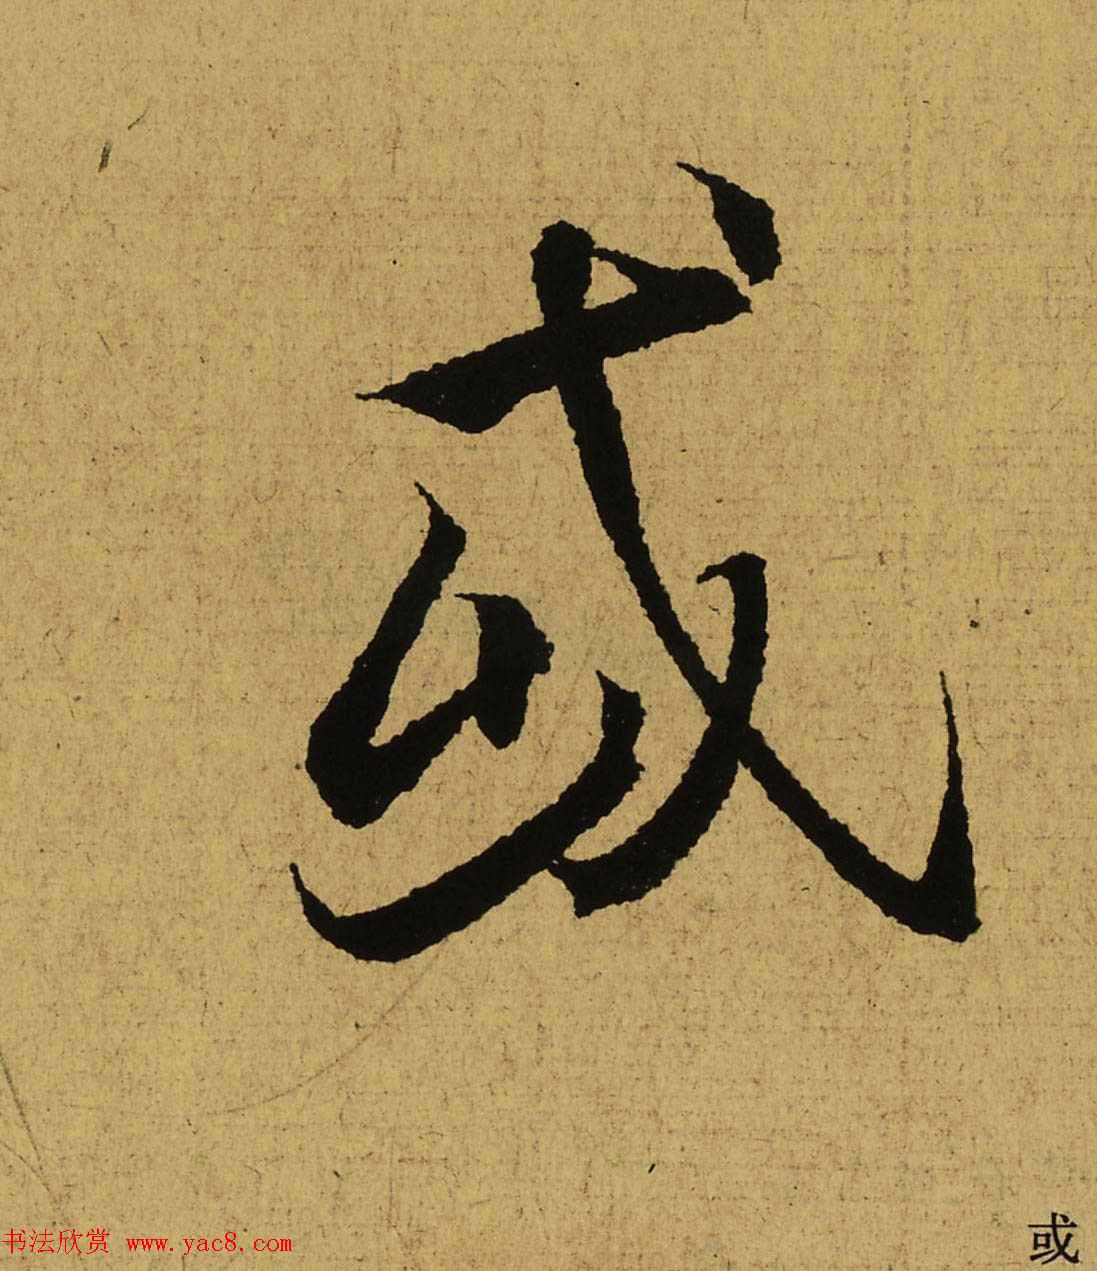 或
书法欣赏 www.yac8.com
或